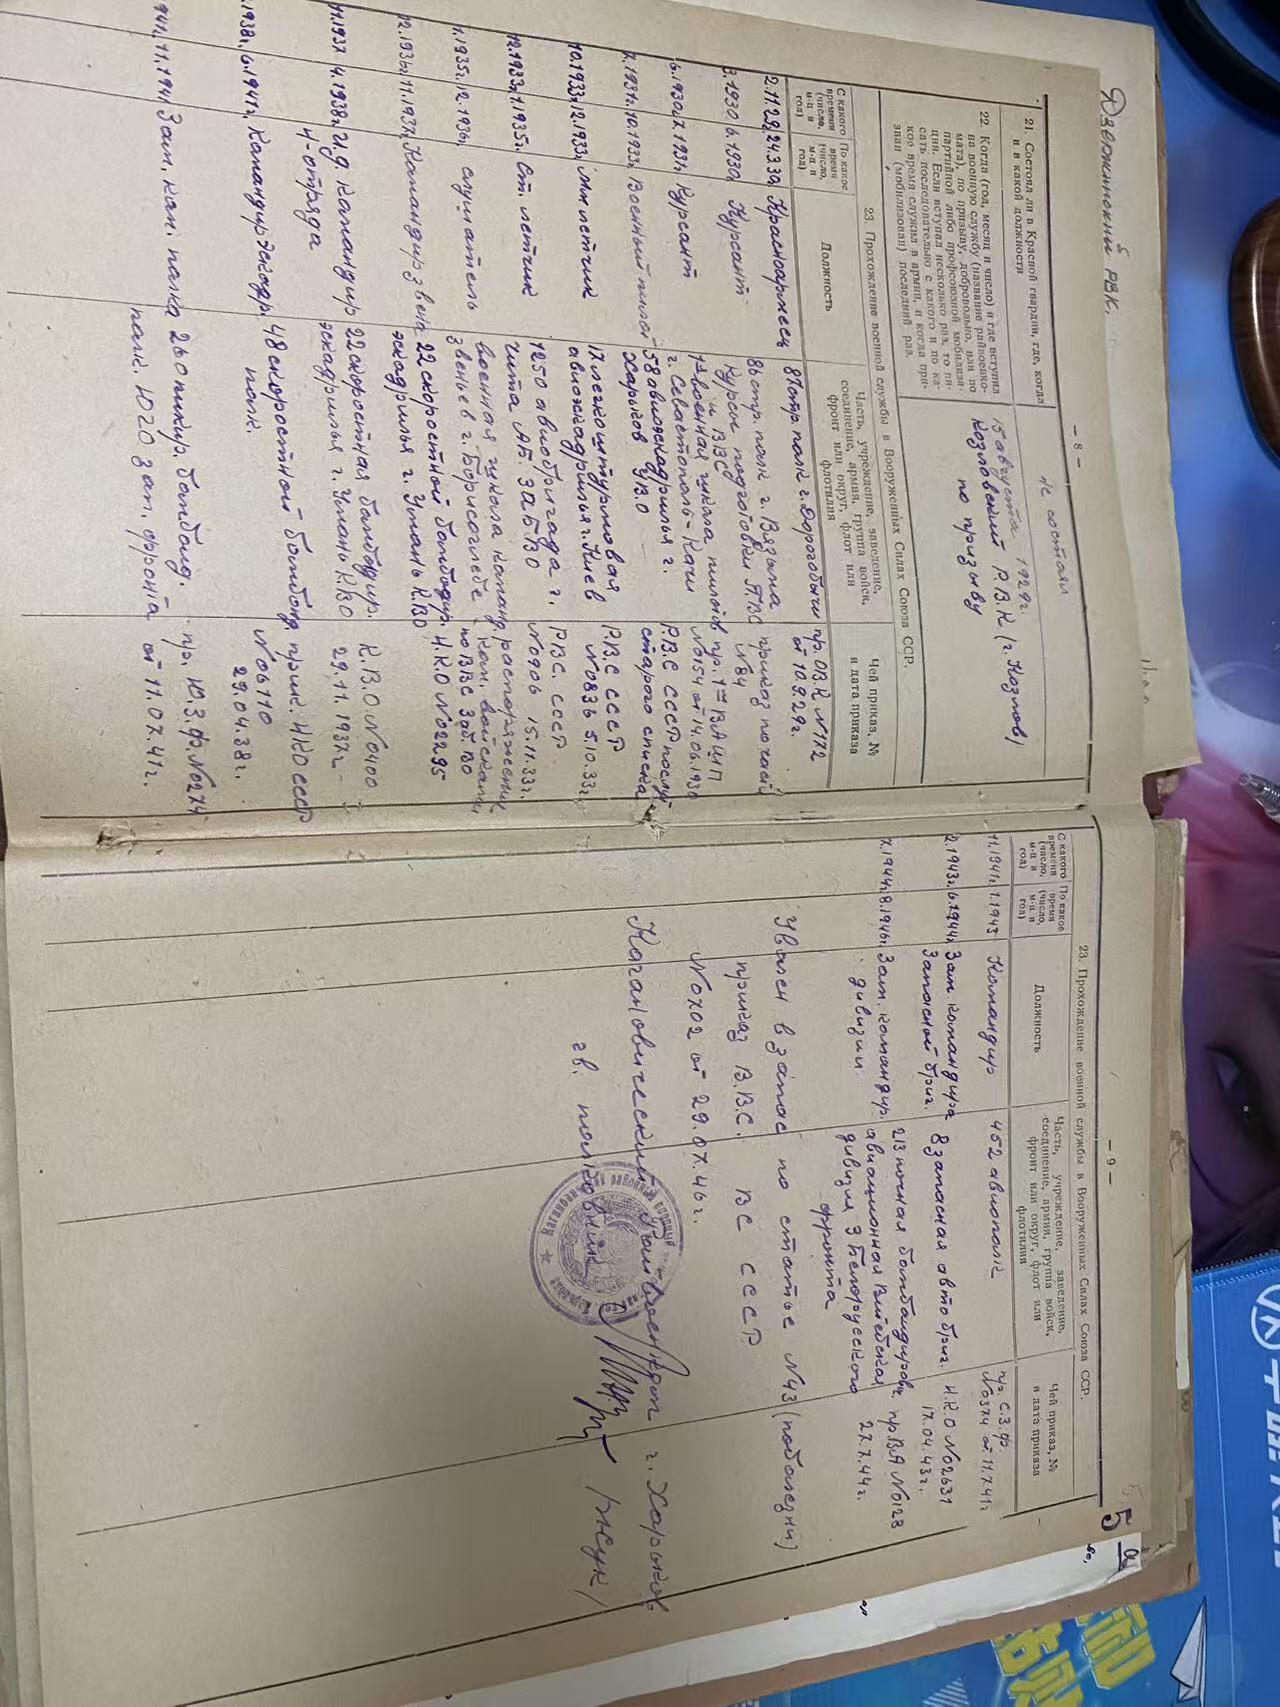 Дзержинский РВК.
— 8 —
21. Состоял ли в Красной гвардии, где, когда
и в какой должности
не состоял
22. Когда (год, месяц и число) и где вступил
на военную службу (название райвоенко-
мата), по призыву, добровольно, или по
партийной либо профсоюзной мобилиза-
ции. Если вступал несколько раз, то пи-
сать последовательно с какого и по ка-
кое время служил в армии, и когда при-
зван (мобилизован) последний раз.
15 августа 1929г.
Козловский Р.В.К (г. Козлов)
по призыву
23. Прохождение военной службы в Вооруженных Силах Союза ССР.
С какого
времени
(число,
м-ц и
год)
По какое
время
(число,
м-ц и
год)
Должность
Часть, учреждение, заведение,
соединение, армия, группа войск,
фронт или округ, флот или
флотилия
Чей приказ, №
и дата приказа
Красноармеец
87 стр. полк г. Дорогобуш
пр. ОВ.К №172
от 10.9.29г.
3.1930 6.1930 Курсант
86 стр. полк г. Вязьма
курсы подготовки
и ВВС
приказ по части
№84
6.1930 7.1931г. Курсант
1-я военная школа пилотов
г. Севастополь-Кача
№0154 от 14.06.1930
7.1931г. 10.1933г. Военный пилот
58 авиоэскадрилья г.
Харьков У.В.О
Р.В.С СССР послуж
старого списка
10.1933г. 12.1933г. Мл. летчик
17 легкоштурмовая
авиоэскадрилья г. Киев
Р.В.С СССР
№0836 5.10.33г.
12.1933г. 11.1935г. Ст. летчик
1250 авиобригада г.
Чита АБ. ЗАБВО
Р.В.С. СССР
№0906 15.11.33г.
11.1935г. 12.1936г. слушатель
военная школа команд.
звеньев г. Борисоглебск
распоряжение
ком. войсками
по ВВС Заб. ВО
12.1936г. 11.1937г. Командир звена
22 скоростной бомбардир.
эскадрилья г. Умань К.ВО
Н.К.О №02295
11.1937г. 4.1938г. И.д. командир
4-отряда
22 скоростная бомбардир.
эскадрилья г. Умань К.ВО
К.В.О №0400
29.11.1937г.
.1938г. 6.1941г. Командир эскадр.
48 скоростной бомбард
полк.
прик. НКО СССР
№06110
29.04.38г.
11.1941 Зам. ком. полка
260 пикир. бомбард.
полк. Ю20 зап. фронта
пр. Ю.З.ф. №0274
от 11.07.41г.
— 9 —
23. Прохождение военной службы в Вооруженных Силах Союза ССР.
С какого
времени
(число,
м-ц и
год)
По какое
время
(число,
м-ц и
год)
Должность
Часть, учреждение, заведение,
соединение, армия, группа войск,
фронт или округ, флот или
флотилия
Чей приказ, №
и дата приказа
11.1941г. 1.1943 Командир
452 авиополк
пр. С.З.ф.
№0374 от 11.7.41г
2.1943г. 6.1944г. Зам. командира
Запасной бриг.
8 запасная авто бриг.
Н.К.О №02631
17.04.43г.
7.1944г. 8.1946г. Зам. командир.
дивизии.
213 ночная бомбардиров.
авиационная Витебская
дивизия 3 Белорусского
фронта
пр ВА №0128
27.7.44г.
Уволен в запас по статье №43 (по болезни)
приказ В.В.С. ВС СССР
№0702 от 29.07.46г.
Кагановический Райвоенком г. Харьков
гв. полковник
5